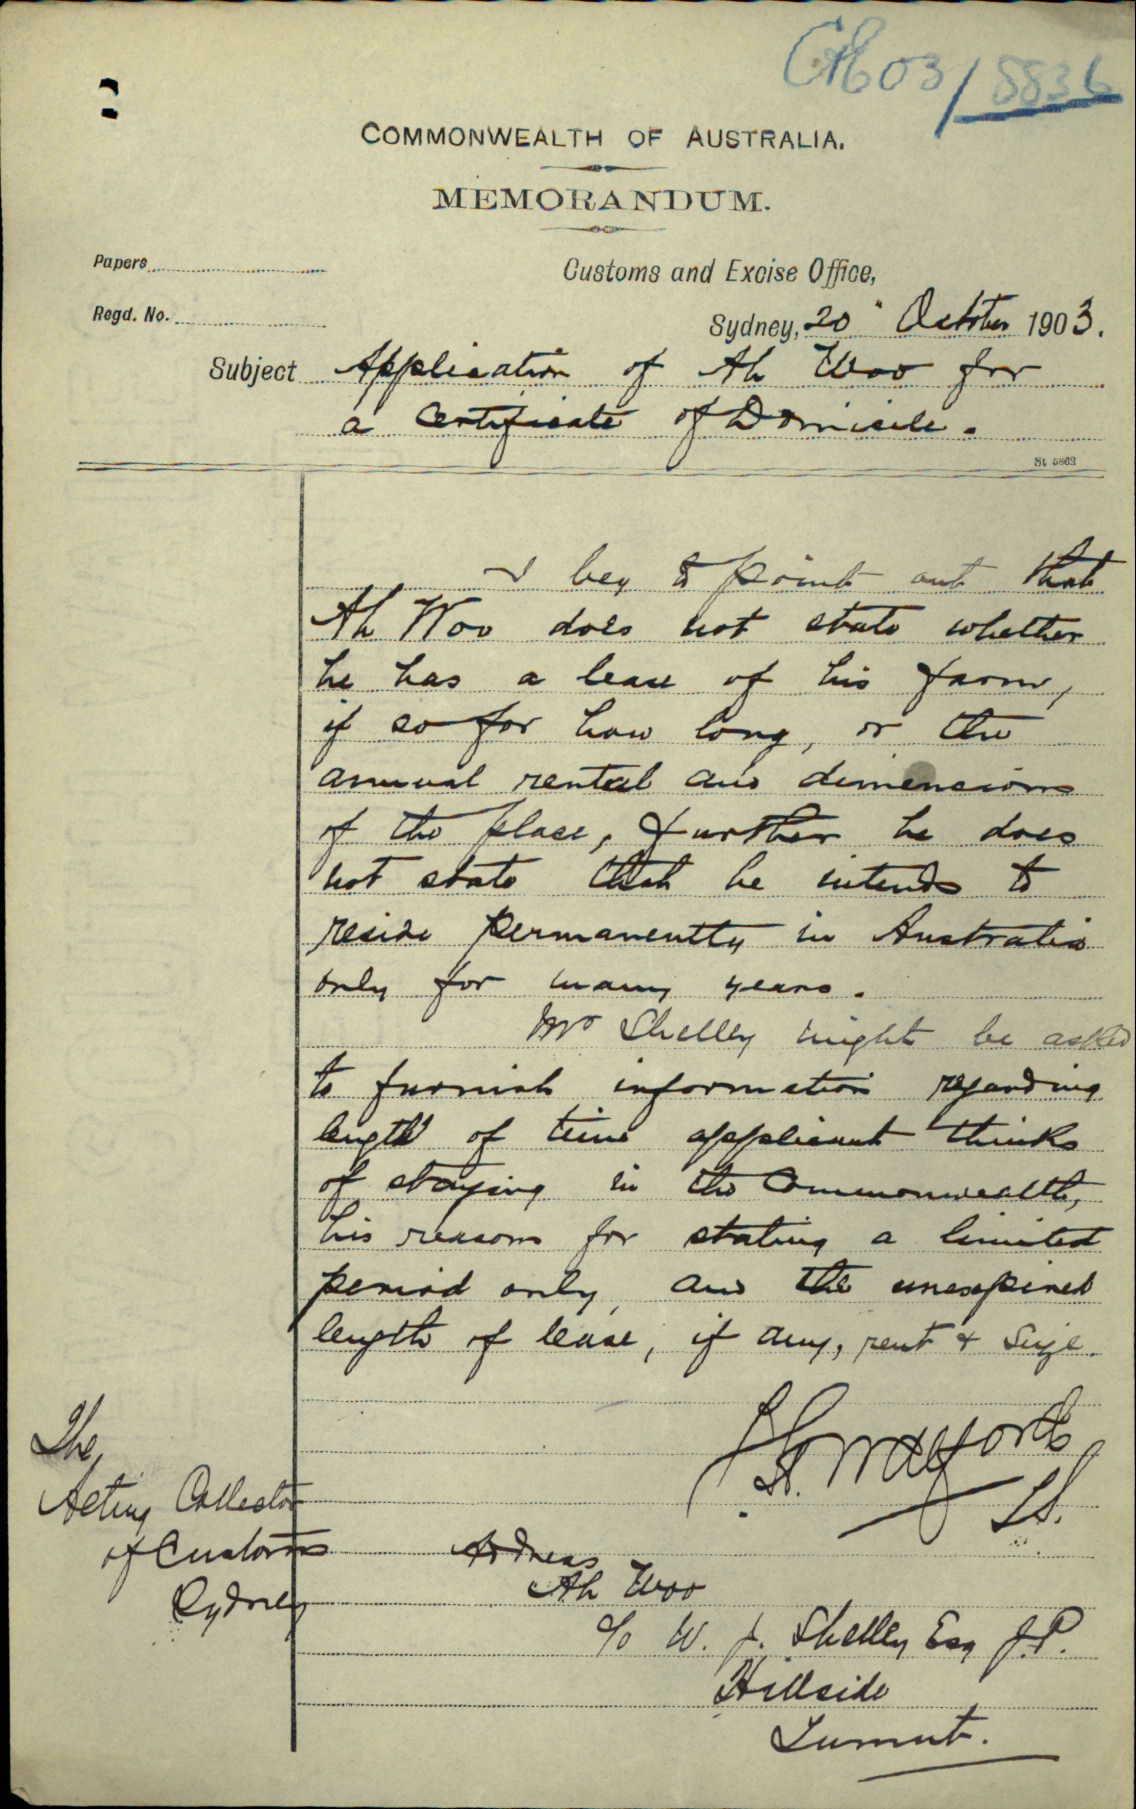 C03/8836
COMMONWEALTH OF AUSTRALIA.
MEMORANDUM.
Papers
Customs and Excise Office,
Regd. No.
Sydney, 20" October 1903.
Subject Application of Ah Woo for
a Certificate of Domicile.
St 5863
I beg to point out that
Ah Woo does not state whether
he has a lease of his farm,
if so for how long, or the
annual rental and dimensions
of the place, further he does
not state that he intends to
reside permanently in Australia
only for many years.
Mr Shelley might be asked
to furnish information regarding
length of time applicant thinks
of staying in the Commonwealth,
his reasons for stating a limited
period only, and the unexpired
length of lease, if any, rent & size.
The
Acting Collector
of Customs
Sydney
Address
Ah Woo
c/o W. J. Shelley Esq J.P.
Hillside
Tumut.